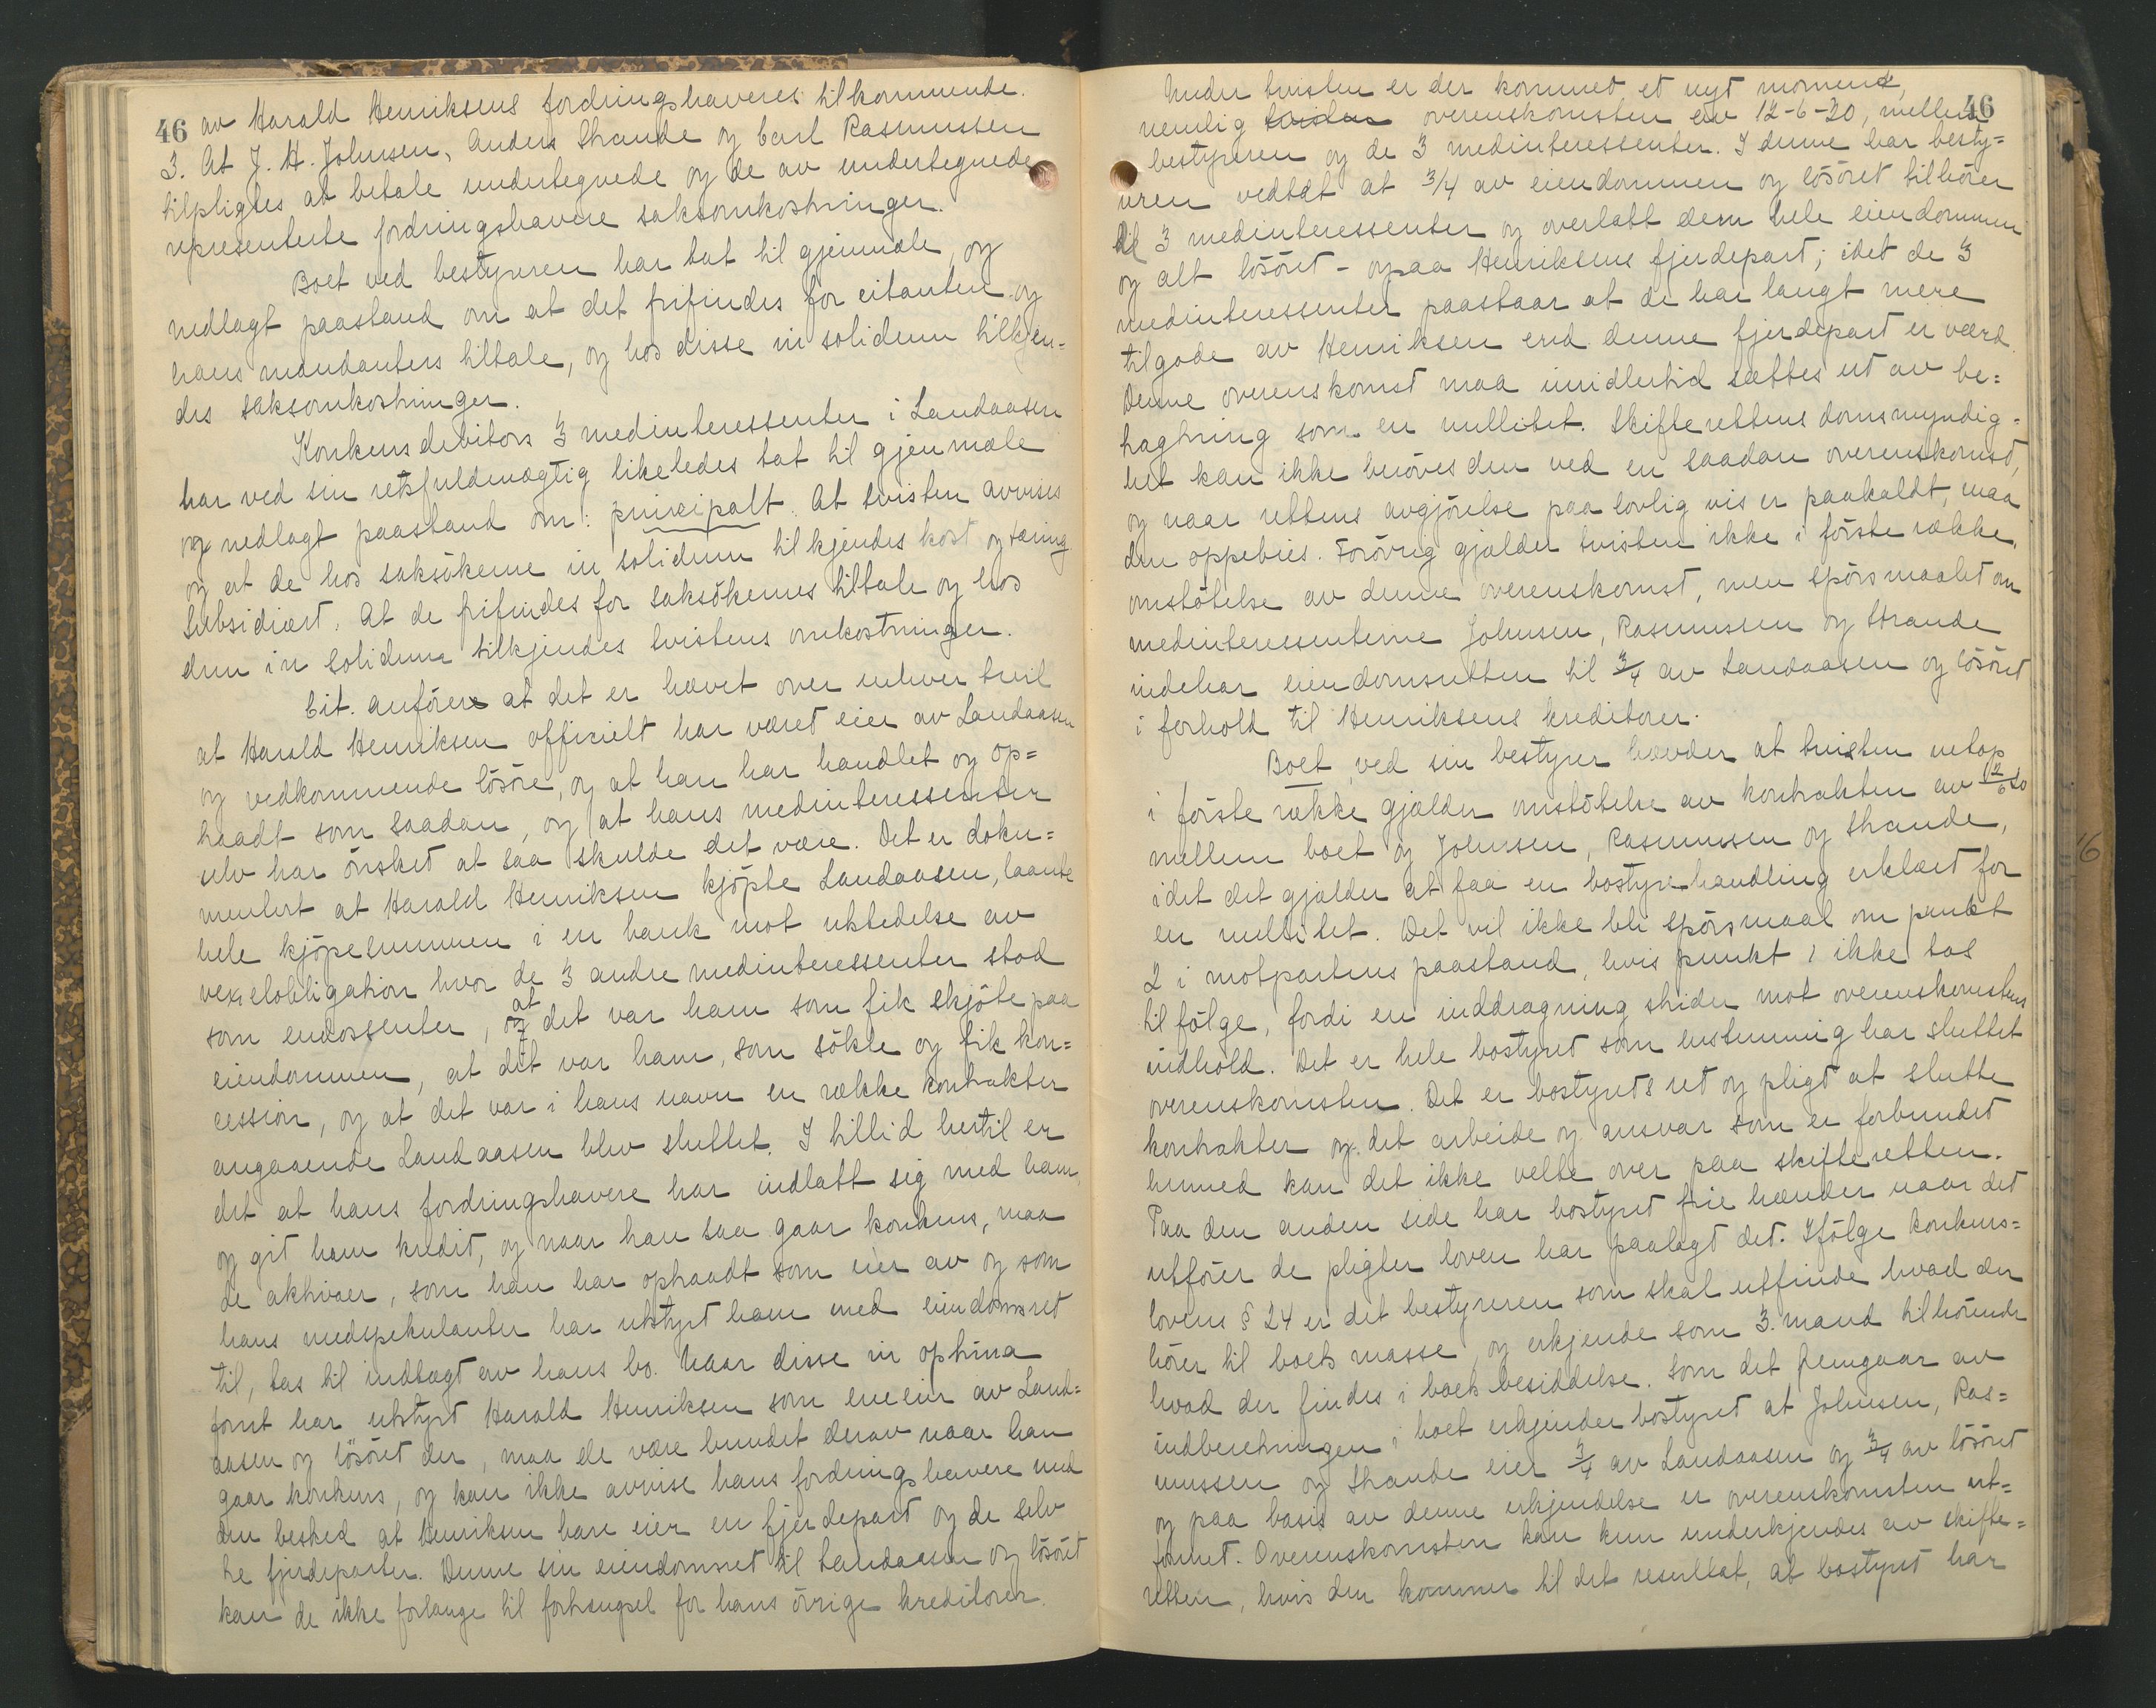 46
av Harald Henriksens fordringshaveres tilkommende.
3. At J. H. Johnsen, Anders Strande og Carl Rasmussen
tilpligtes at betale undertegnede og de av undertegnede
representerte fordringshavere saksomkostninger.
Boet ved bestyreren har tat til gjenmæle, og
nedlagt paastand om at det frifindes for citanten og
hans mandanters tiltale, og hos disse in solidum tilkjen=
des saksomkostninger.
Konkursdebitors 3 medinteressenter i Landaasen
har ved sin retsfuldmægtig likeledes tat til gjenmæle
og nedlagt paastand om: principalt. At tvisten avvises
og at de hos saksökerne in solidum tilkjendes kost og tæring
Subsidiært. At de frifindes for saksökernes tiltale og hos
dem in solidum tilkjendes tvistens omkostninger.
Cit. anförer at det er hævet over enhver tvil
at Harald Henriksen officielt har været eier av Landaasen
og vedkommende lösöre, og at han har handlet og op=
traadt som saadan, og at hans medinteressenter
selv har önsket at saa skulde det være. Det er doku=
mentert at Harald Henriksen kjöpte Landaasen, laante
hele kjöpesummen i en bank mot utstedelse av
vexelobligation hvor de 3 andre medinteressenter stod
som endossenter, og at det var ham som fik skjöte paa
eiendommen, at det var ham, som sökte og fik kon=
cession, og at det var i hans navn en række kontrakter
angaaende Landaasen blev sluttet. I tillid hertil er
det at hans fordringshavere har indlatt sig med ham,
og git ham kredit, og naar han saa gaar konkurs, maa
de aktiver, som han har optraadt som eier av og som
hans medspekulanter har utstyrt ham med eiendomsret
til, tas til indtægt av hans bo. Naar disse in optima
forma har utstyrt Harald Henriksen som eneeier av Land=
aasen og lösöret der, maa de være bundet derav naar han
gaar konkurs, og kan ikke avvise hans fordringshavere med
den besked at Henriksen bare eier en fjerdepart og de selv
tre fjerdeparter. Denne sin eiendomsret til Landaasen og lösöret
kan de ikke forlange til fortrengsel for hans övrige kreditorer.
46
Under tvisten er der kommet et nyt moment,
nemlig tvisten overenskomsten av 12-6-20, mellem
bestyreren og de 3 medinteressenter. I denne har besty=
reren vedtat at 3/4 av eiendommen og lösöret tilhörer
de 3 medinteressenter og overlatt dem hele eiendommen
og alt lösöret - ogsaa Henriksens fjerdepart; idet de 3
medinteressenter paastaar at de har langt mere
tilgode av Henriksen end denne fjerdepart er værd.
Denne overenskomst maa imidlertid sættes ut av be=
tragtning som en nullitet. Skifterettens domsmyndig=
het kan ikke berøves den ved en saadan overenskomst,
og naar rettens avgjörelse paa lovlig vis er paakaldt, maa
den oppebies. Forövrig gjælder tvisten ikke i förste række
omstötelse av denne overenskomst, men spörsmaalet om
medinteressenterne Johnsen, Rasmussen og Strande
indehar eiendomsretten til 3/4 av Landaasen og lösöret
i forhold til Henriksens kreditorer.
Boet, ved sin bestyrer hævder at tvisten netop
i förste række gjælder omstötelse av kontrakten av 12/6 20
mellem boet og Johnsen, Rasmussen og Strande,
idet det gjælder at faa en bostyrehandling erklært for
en nullitet. Det vil ikke bli spörsmaal om punkt
2 i motpartens paastand, hvis punkt 1 ikke tas
til fölge, fordi en inddragning strider mot overenskomstens
indhold. Det er hele bostyret som enstemmig har sluttet
overenskomsten. Det er bostyrets ret og pligt at slutte
kontrakter og det arbeide og ansvar som er forbundet
hermed kan det ikke velte over paa skifteretten.
Paa den anden side har bostyret frie hænder naar det
utförer de pligter loven har paalagt det. Ifölge konkurs=
lovens § 24 er det bestyreren som skal utfinde hvad der
hörer til boets masse, og erkjende som 3. mand tilhörende
hvad der findes i boets besiddelse. Som det fremgaar av
indberetningen i boet erkjender bostyret at Johnsen, Ras=
mussen og Strande eier 3/4 av Landaasen og 3/4 av lösöret
og paa basis av denne erkjendelse er overenskomsten ut=
formet. Overenskomsten kan kun underkjendes av skifte=
retten, hvis den kommer til det resultat, at bostyret har